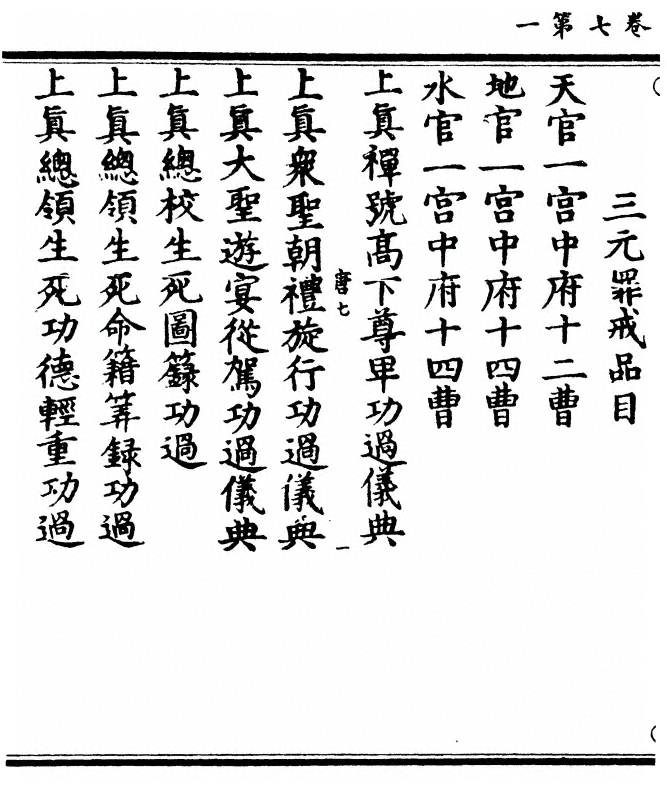 卷七第一
三元罪戒品目
天官一宮中府十二曹
地官一宮中府十四曹
水官一宮中府十四曹
上眞禪號高下尊卑功過儀典
唐七
一
上眞衆聖朝禮旋行功過儀典
上眞大聖遊宴從駕功過儀典
上眞總校生死圖籙功過
上眞總領生死命籍筭録功過
上眞總領生死功德輕重功過